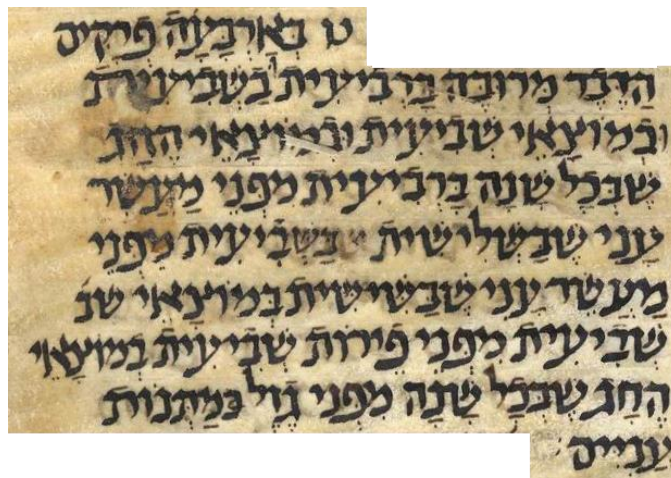 ט בארבעה פרקים
הדבר מרובה ברביעית בשביעית
ובמוצאי שביעית ובמוצאי החג
שבכל שנה ברביעית מפני מעשר
עני שבשלישית בשביעית מפני
מעשר עני שבשישית במוצאי שב
שביעית מפני פירות שביעית במוצאי
החג שבכל שנה מפני גזל במתנות
עניים